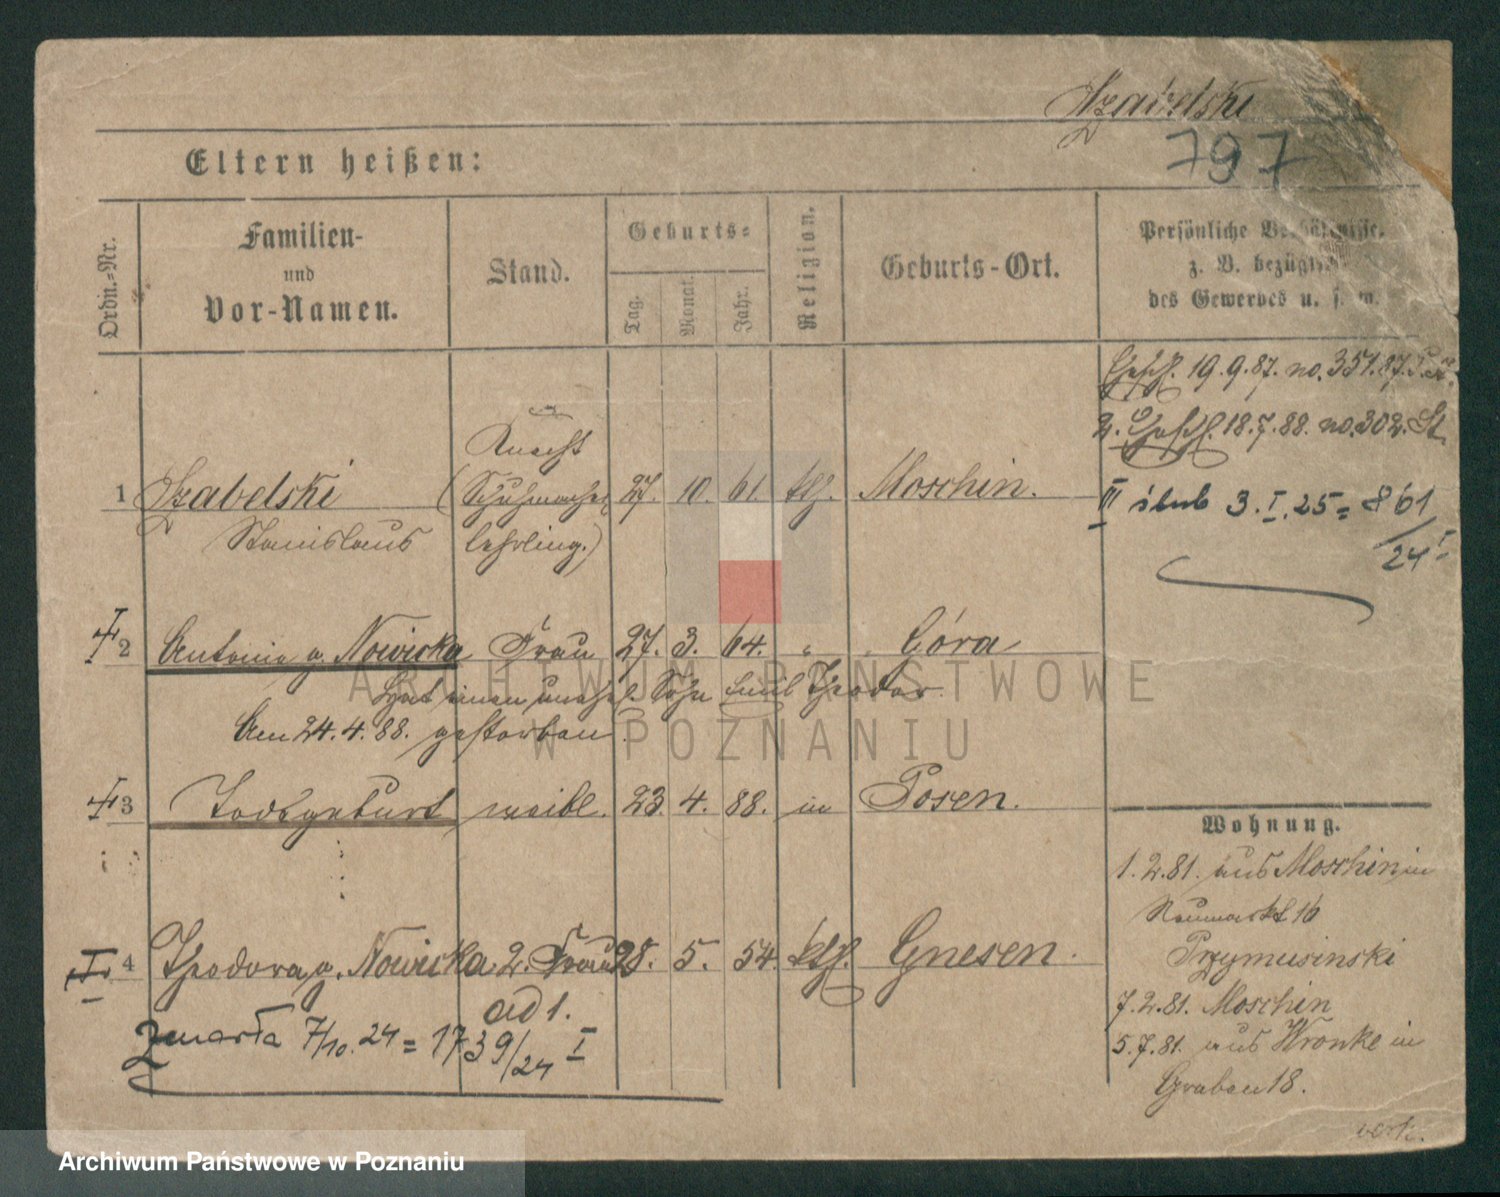 Szabelski
797
Eltern heißen:
Ordn.-Nr.
Familien-
und
Vor-Namen.
Stand.
Geburts-
Tag.
Monat.
Jahr.
Religion.
Geburts-Ort.
Persönliche Verhältnisse,
z. B. bezüglich
des Gewerbes u. s. w.
Ehesch. 19.9.87. no. 351.87.
2. Ehesch. 18.7.88. no. 302. St
Knecht
1 Szabelski (Schuhmacher 27. 10. 61. kth. Moschin.
Stanislaus lehrling.)
III ślub 3.I.25 = 861
/24 I
2 Antonie g. Nowicka Frau 27. 3. 64. " " Góra
Hat einen unehel. Sohn Emil Theodor.
Am 24.4.88. gestorben.
3 Todtgeburt weibl. 23. 4. 88. in Posen.
4 Theodora g. Nowicka 2. Frau 28. 5. 54. kth. Gnesen.
ad 1.
Zmarła 7/10. 24 = 1739/24 I
Wohnung.
1.2.81. aus Moschin in
Neumarkt 16
Przymusinski
7.2.81. Moschin
5.7.81. aus Wronke in
Graben 18.
verh.
ARCHIWUM PAŃSTWOWE
W POZNANIU
Archiwum Państwowe w Poznaniu